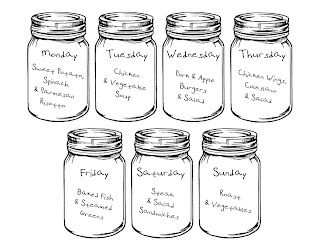 Monday
Sweet Potato,
Spinach
& Parmesan
Risotto
Tuesday
Chicken
& Vegetable
Soup
Wednesday
Pork & Apple
Burgers
& Salad
Thursday
Chicken Wings,
Coleslaw
& Salad
Friday
Baked Fish
& Steamed
Greens
Saturday
Steak
& Salad
Sandwiches
Sunday
Roast
& Vegetables